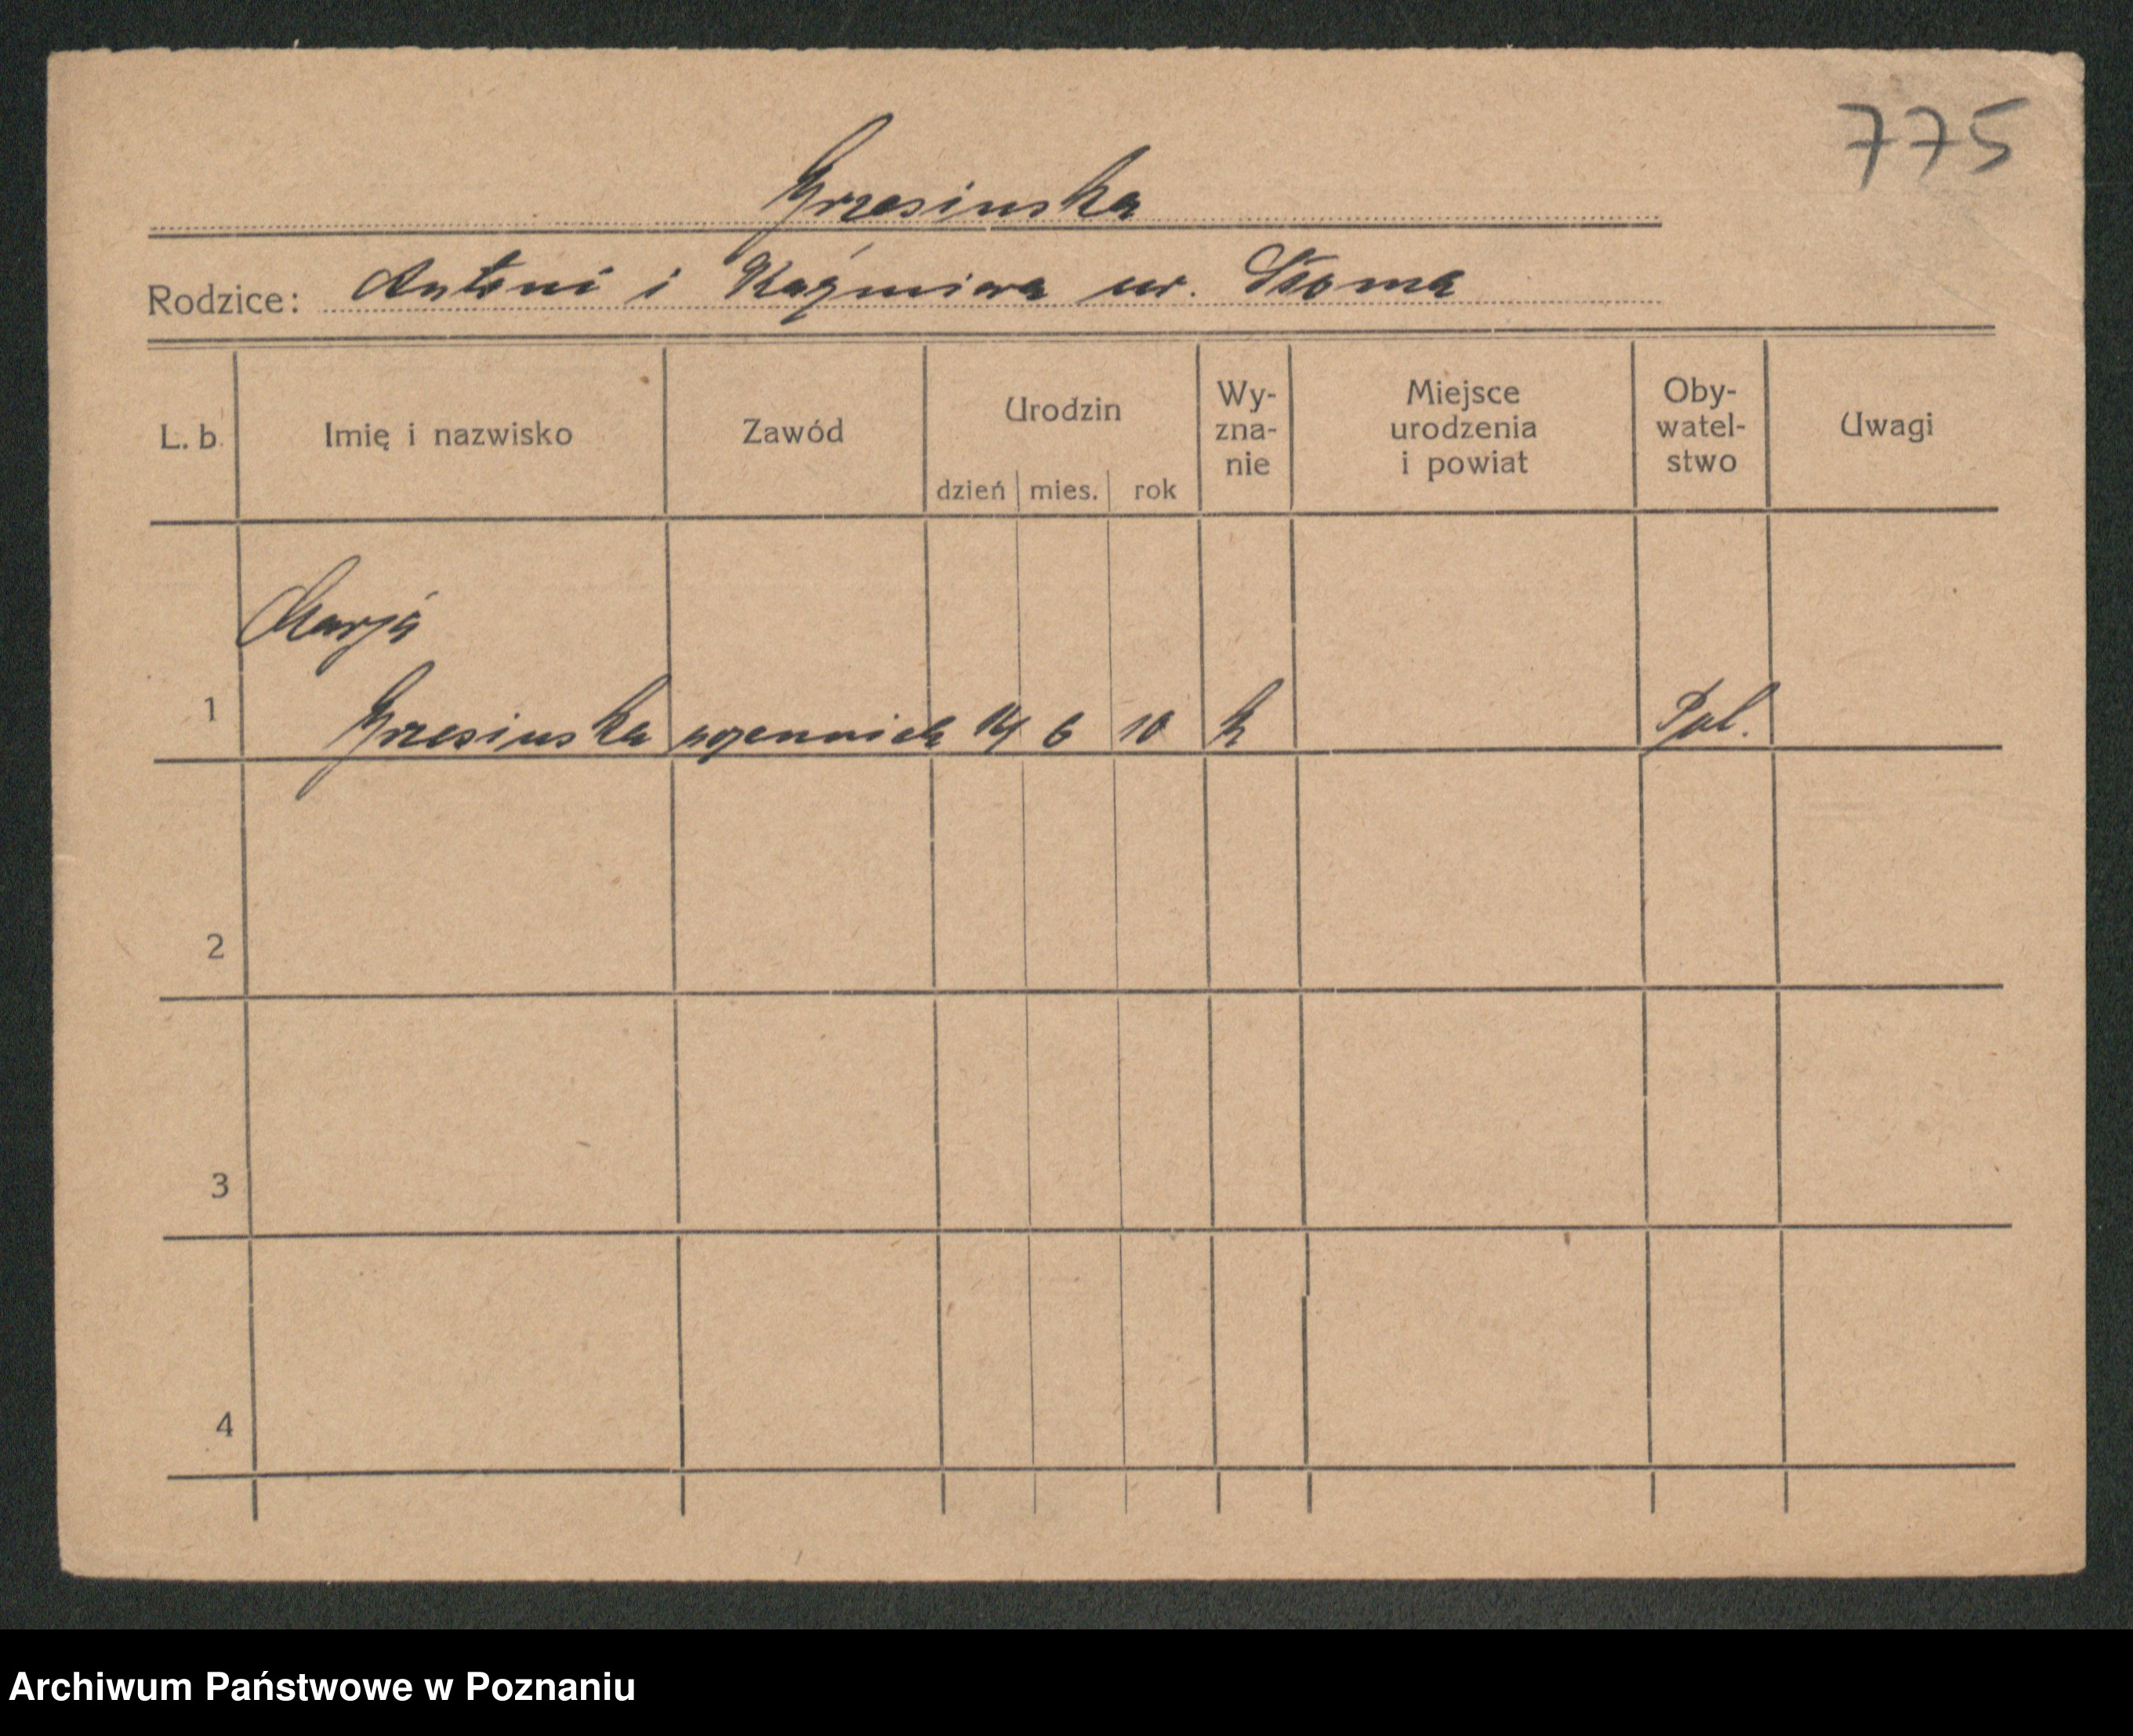 775
Grzesinska
Rodzice: Antoni i Kaźmiera ur. Słoma
L. b. Imię i nazwisko Zawód Urodzin Wy-zna-nie Miejsce urodzenia i powiat Oby-watel-stwo Uwagi
dzień mies. rok
Marja
1 Grzesinska 14 6 10 k Pol.
2
3
4
Archiwum Państwowe w Poznaniu